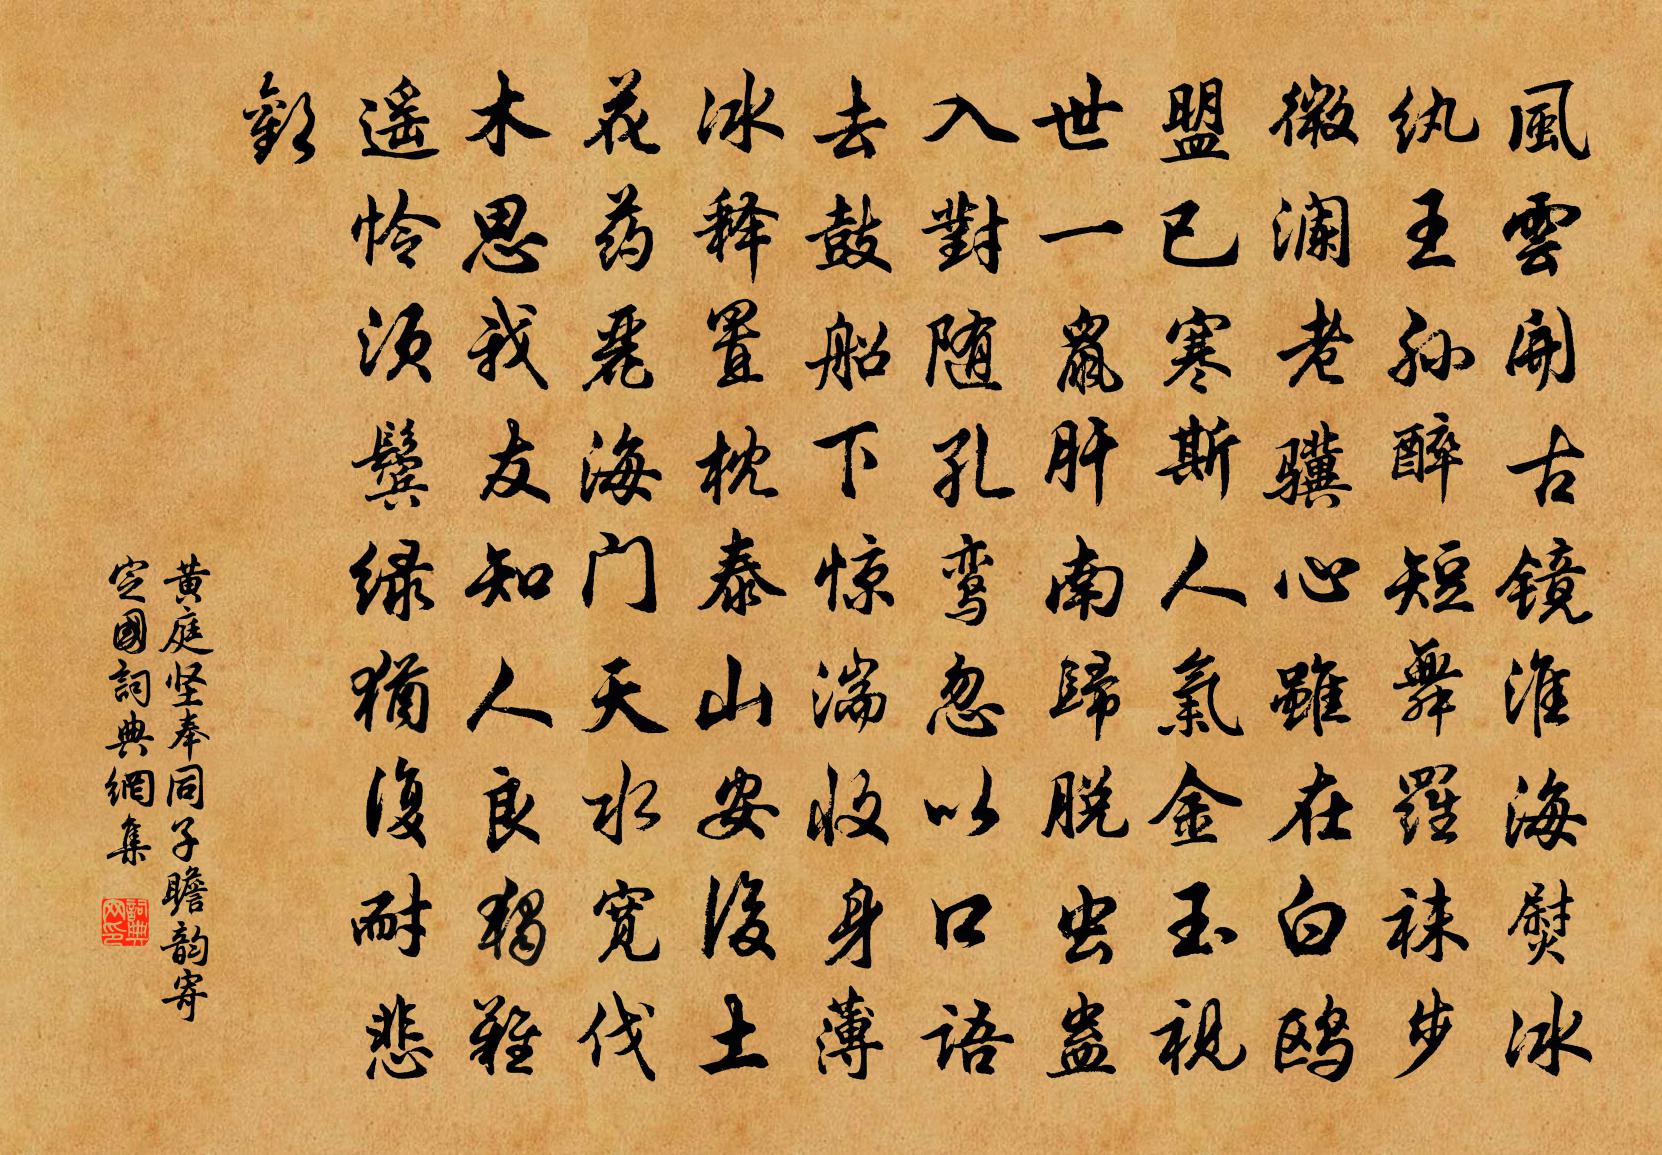 風雲開古镜淮海熨冰
纨王孙醉短舞羅袜步
微澜老骥心雖在白鸥
盟已寒斯人氣金玉視
世一鼠肝南歸脱虫蛊
入對随孔鸾忽以口語
去鼓船下惊湍收身薄
冰释置枕泰山安後土
花药麗海门天水寛伐
木思我友知人良獨難
遥怜须鬓绿猶復耐悲
歡
黄庭坚奉同子瞻韵寄
定國詞典網集
詞典网印